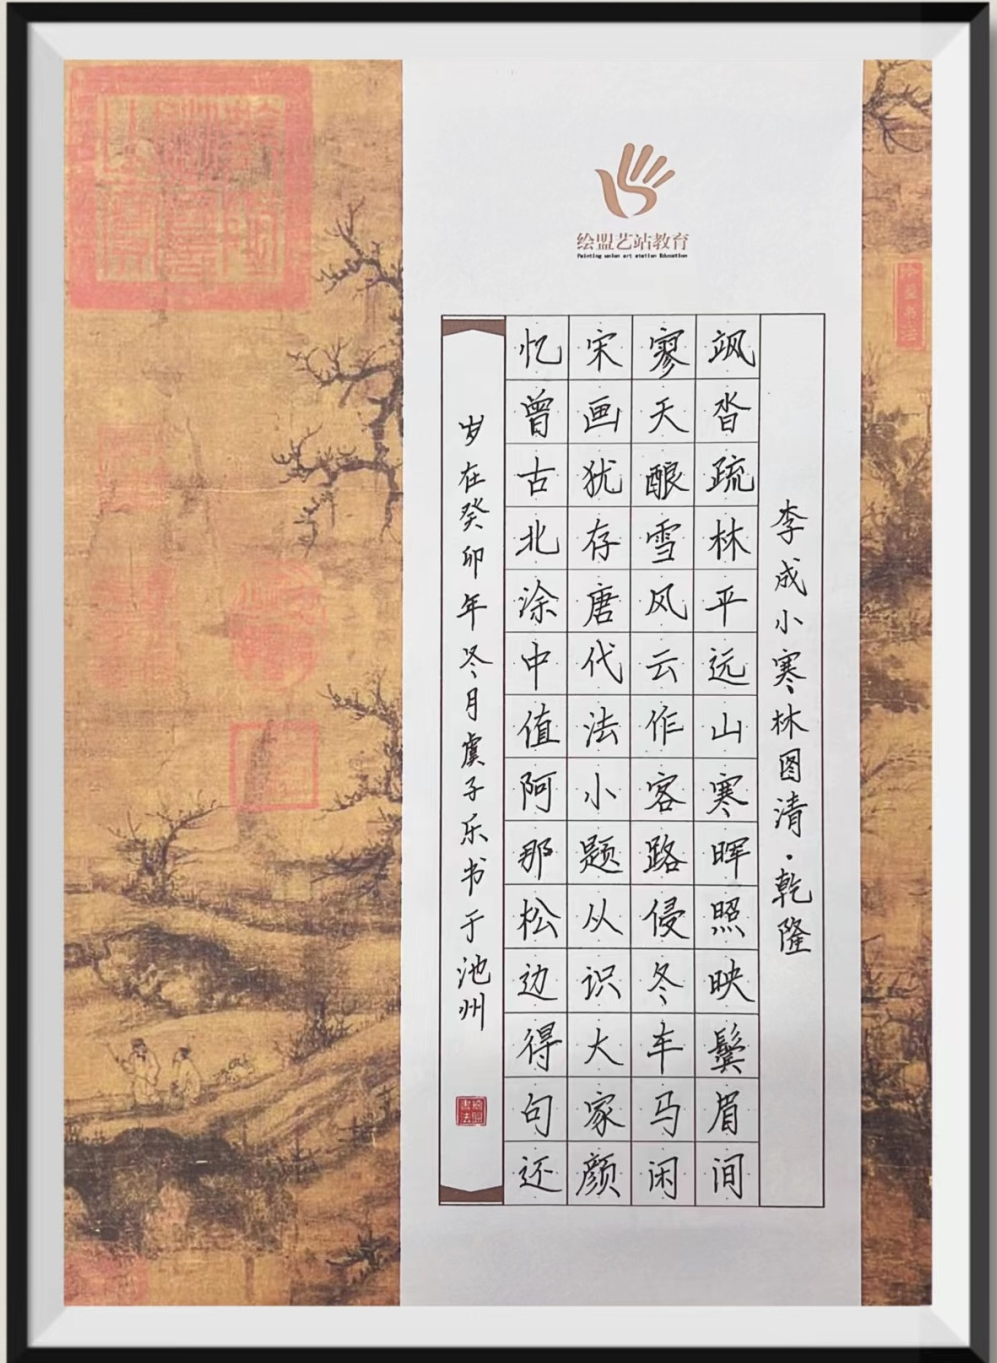 绘盟艺站教育
Painting union art station Education
李成小寒林图清·乾隆
飒沓疏林平远山寒晖照映鬓眉间
寥天酿雪风云作客路侵冬车马闲
宋画犹存唐代法小题从识大家颜
忆曾古北涂中值阿那松边得句还
岁在癸卯年冬月虞子乐书于池州
绘盟書法
绘盟书法